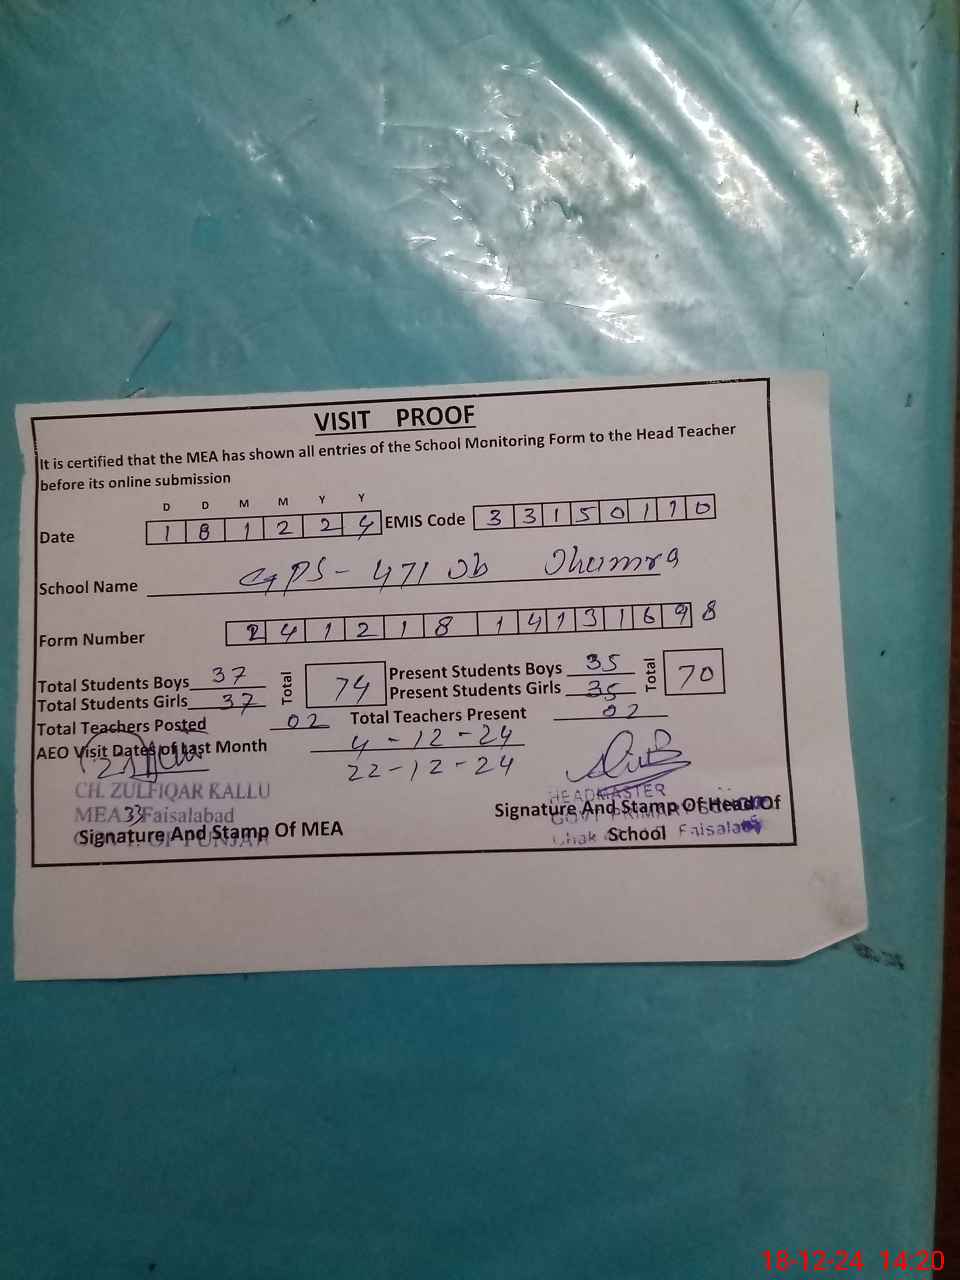 VISIT PROOF
It is certified that the MEA has shown all entries of the School Monitoring Form to the Head Teacher
before its online submission
D D M M Y Y
Date 1 8 1 2 2 4 EMIS Code 3 3 1 5 0 1 1 0
School Name GPS - 471 Jhumra
Form Number 2 4 1 2 1 8 1 4 1 3 1 6 9 8
Total Students Boys 37 Total 74 Present Students Boys 35 Total 70
Total Students Girls 37 Present Students Girls 35
Total Teachers Posted 02 Total Teachers Present 02
AEO Visit Dates of Last Month 4-12-24
22-12-24
CH. ZULFIQAR KALLU
MEA 33 Faisalabad
GOVT. OF PUNJAB
Signature And Stamp Of MEA
HEADMASTER
GOVT PRIMARY SCHOOL
Chak Faisalabad
Signature And Stamp Of Head Of
School
18-12-24 14:20